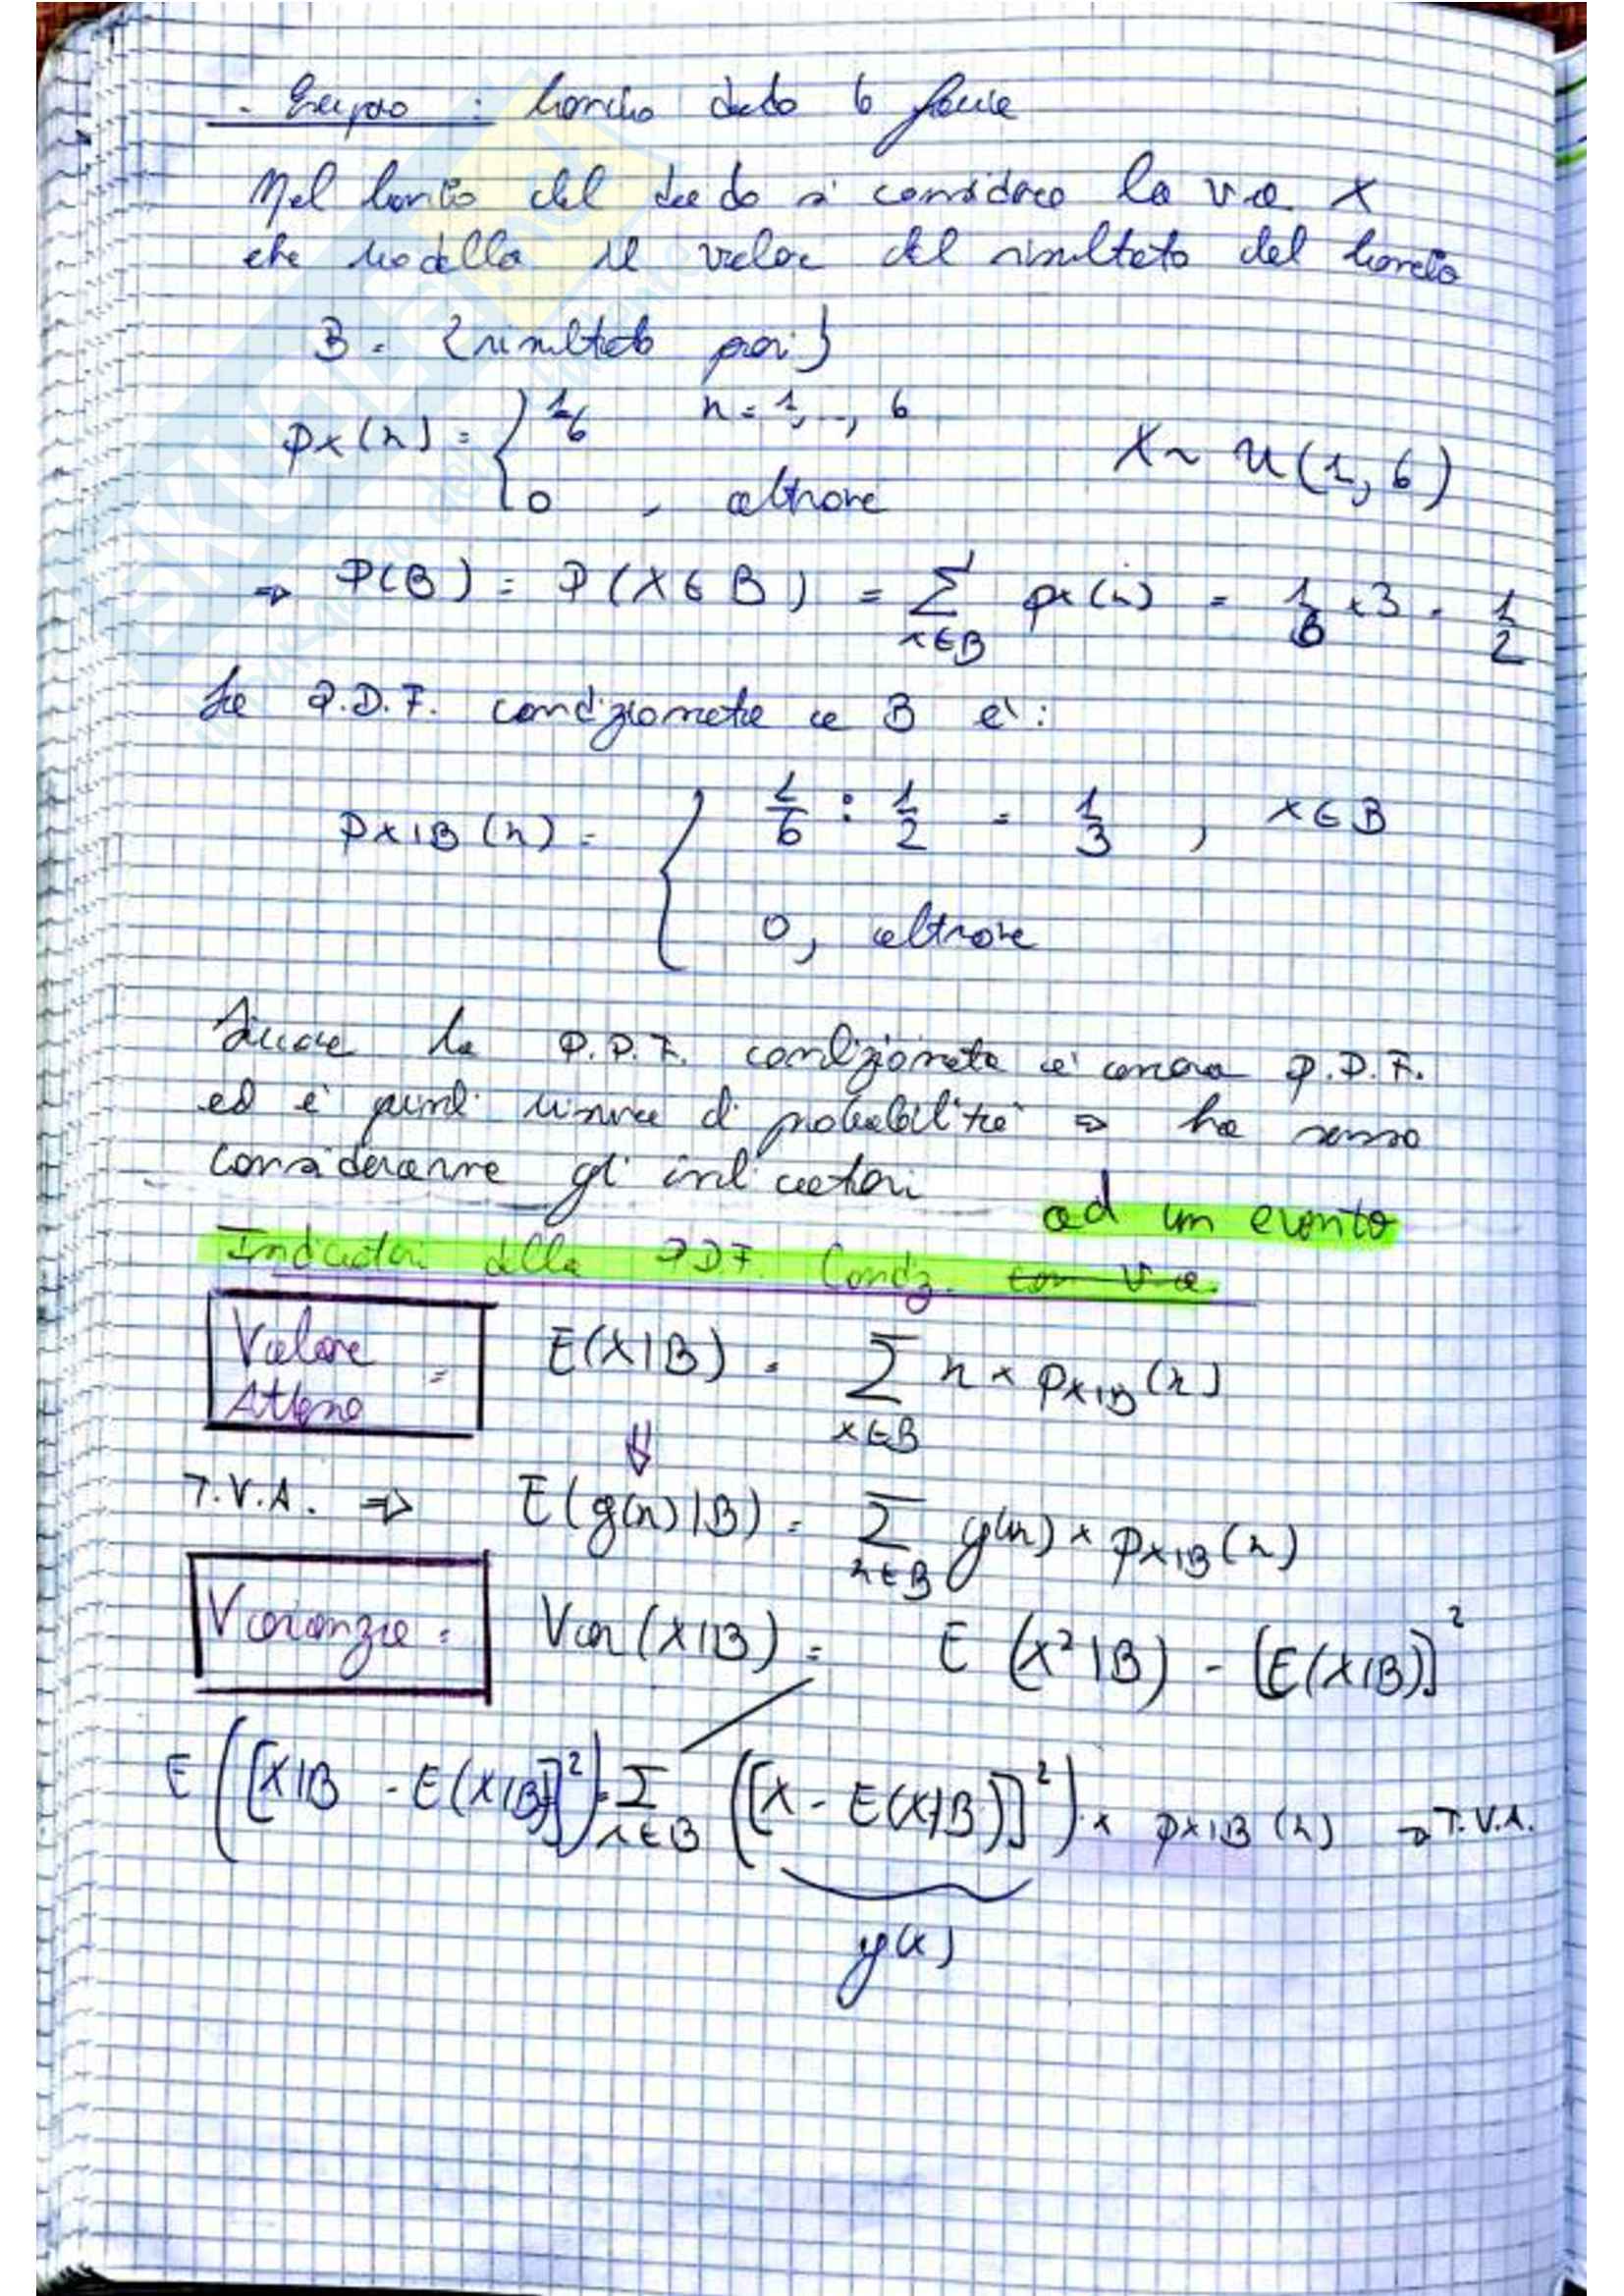 - Esempio : lancio dado 6 facce
Nel lancio del dado si considera la v.a. X
che modella il valore del risultato del lancio
B = {risultato pari}
px(x) = { 1/6 x = 1, .., 6
0 , altrove
X ~ U(1,6)
⇒ P(B) = P(X ∈ B) = Σ x∈B px(x) = 1/6 × 3 = 1/2
La P.D.F. condizionata a B è:
px|B (x) = { 1/6 : 1/2 = 1/3 , x ∈ B
0, altrove
la P.D.F. condizionata è ancora P.D.F.
ed è quindi misura di probabilità ⇒ ha senso
considerarne gli indicatori
ad un evento
Indicatori della PDF Condz. con v.a.
Valore Atteso = E(X|B) = Σ x∈B x × pX|B (x)
⇓
T.V.A. ⇒ E(g(x)|B) = Σ x∈B g(x) × pX|B (x)
Varianza = Var(X|B) = E (X²|B) - [E(X|B)]²
E([X|B - E(X|B)]²) = Σ x∈B ([X - E(X|B)]²) × pX|B (x) → T.V.A.
g(x)
SKUOLA.net